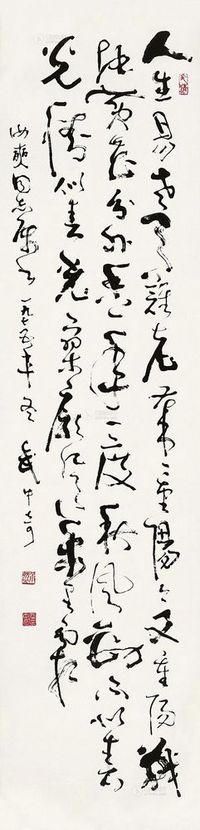 人生易老天難老歲々重陽今又重陽戰
地黄花分外香一年一度秋風勁不似春
光勝似春光寥廓江天萬里霜
同志屬 一九七五年冬 武中奇